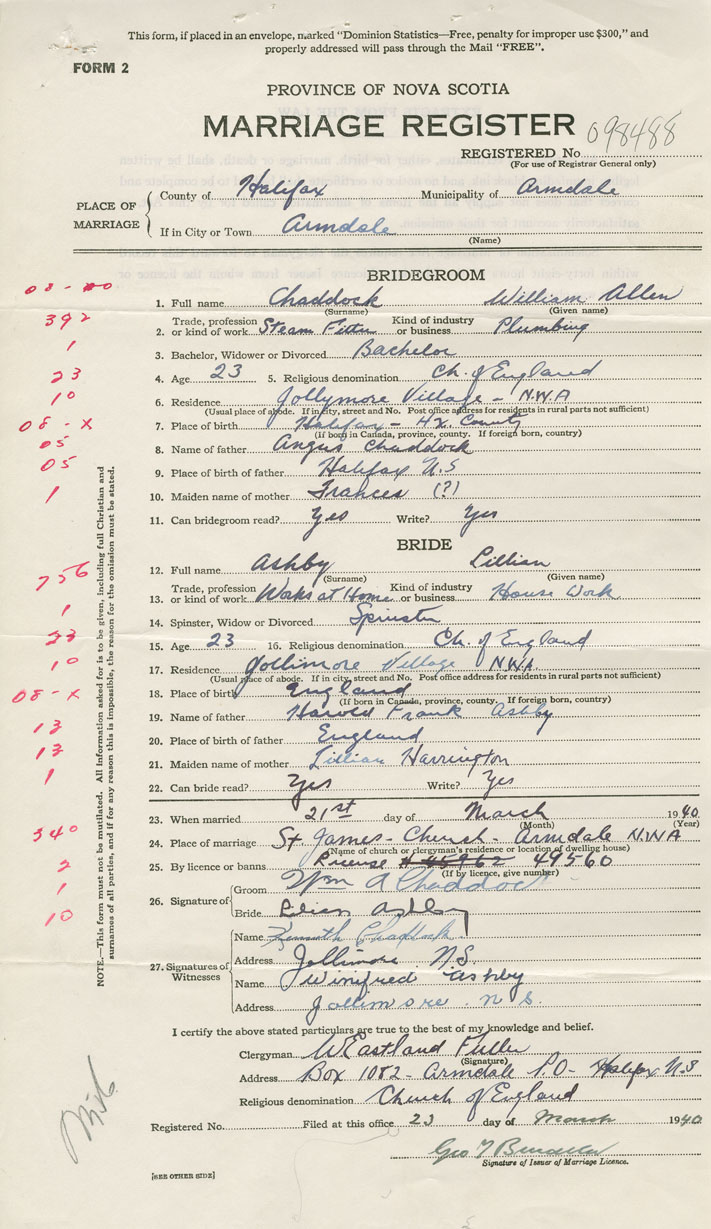 This form, if placed in an envelope, marked "Dominion Statistics—Free, penalty for improper use $300," and
properly addressed will pass through the Mail "FREE".
FORM 2
PROVINCE OF NOVA SCOTIA
MARRIAGE REGISTER 098488
REGISTERED No.
(For use of Registrar General only)
PLACE OF MARRIAGE
County of Halifax Municipality of Armdale
If in City or Town Armdale
(Name)
BRIDEGROOM
08-
1. Full name Chaddock William Allen
(Surname) (Given name)
392
2. Trade, profession or kind of work Steam Fitter Kind of industry or business Plumbing
1
3. Bachelor, Widower or Divorced Bachelor
23
4. Age 23 5. Religious denomination Ch. of England
10
6. Residence Jollymore Village - N.W.A
(Usual place of abode. If in city, street and No. Post office address for residents in rural parts not sufficient)
08-X
7. Place of birth Halifax - Hx. County
(If born in Canada, province, county. If foreign born, country)
05
8. Name of father Angus Chaddock
05
9. Place of birth of father Halifax N.S
1
10. Maiden name of mother Frances (?)
11. Can bridegroom read? Yes Write? Yes
BRIDE
12. Full name Ashby Lillian
(Surname) (Given name)
756
13. Trade, profession or kind of work Works at Home Kind of industry or business House Work
1
14. Spinster, Widow or Divorced Spinster
23
15. Age 23 16. Religious denomination Ch. of England
10
17. Residence Jollimore Village N.W.A.
(Usual place of abode. If in city, street and No. Post office address for residents in rural parts not sufficient)
08-X
18. Place of birth England
(If born in Canada, province, county. If foreign born, country)
13
19. Name of father Harold Frank Ashby
13
20. Place of birth of father England
1
21. Maiden name of mother Lillian Harrington
22. Can bride read? Yes Write? Yes
23. When married 21st day of March 1940
(Month) (Year)
340
24. Place of marriage St James - Church - Armdale N.W.A
(Name of church or clergyman's residence or location of dwelling house)
2
25. By licence or banns License 49560
(If by licence, give number)
1
26. Signature of
Groom Wm A Chaddock
10
Bride Lilian Ashby
27. Signatures of Witnesses
Name Kenneth Chaddock
Address Jollimore N.S.
Name Winifred Ashby
Address Jollimore N.S.
NOTE.—This form must not be mutilated. All information asked for is to be given, including full Christian and
surnames of all parties, and if for any reason this is impossible, the reason for the omission must be stated.
I certify the above stated particulars are true to the best of my knowledge and belief.
Clergyman W Eastland Fuller
(Signature)
Address Box 1082 - Armdale P.O - Halifax N.S
Religious denomination Church of England
Registered No. Filed at this office 23 day of March 1940
Geo T
Signature of Issuer of Marriage Licence.
[SEE OTHER SIDE]